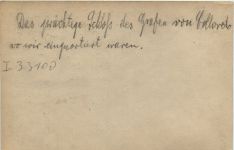 Das prächtige Schloß des Grafen von
wo wir einquartiert waren.
I 33100